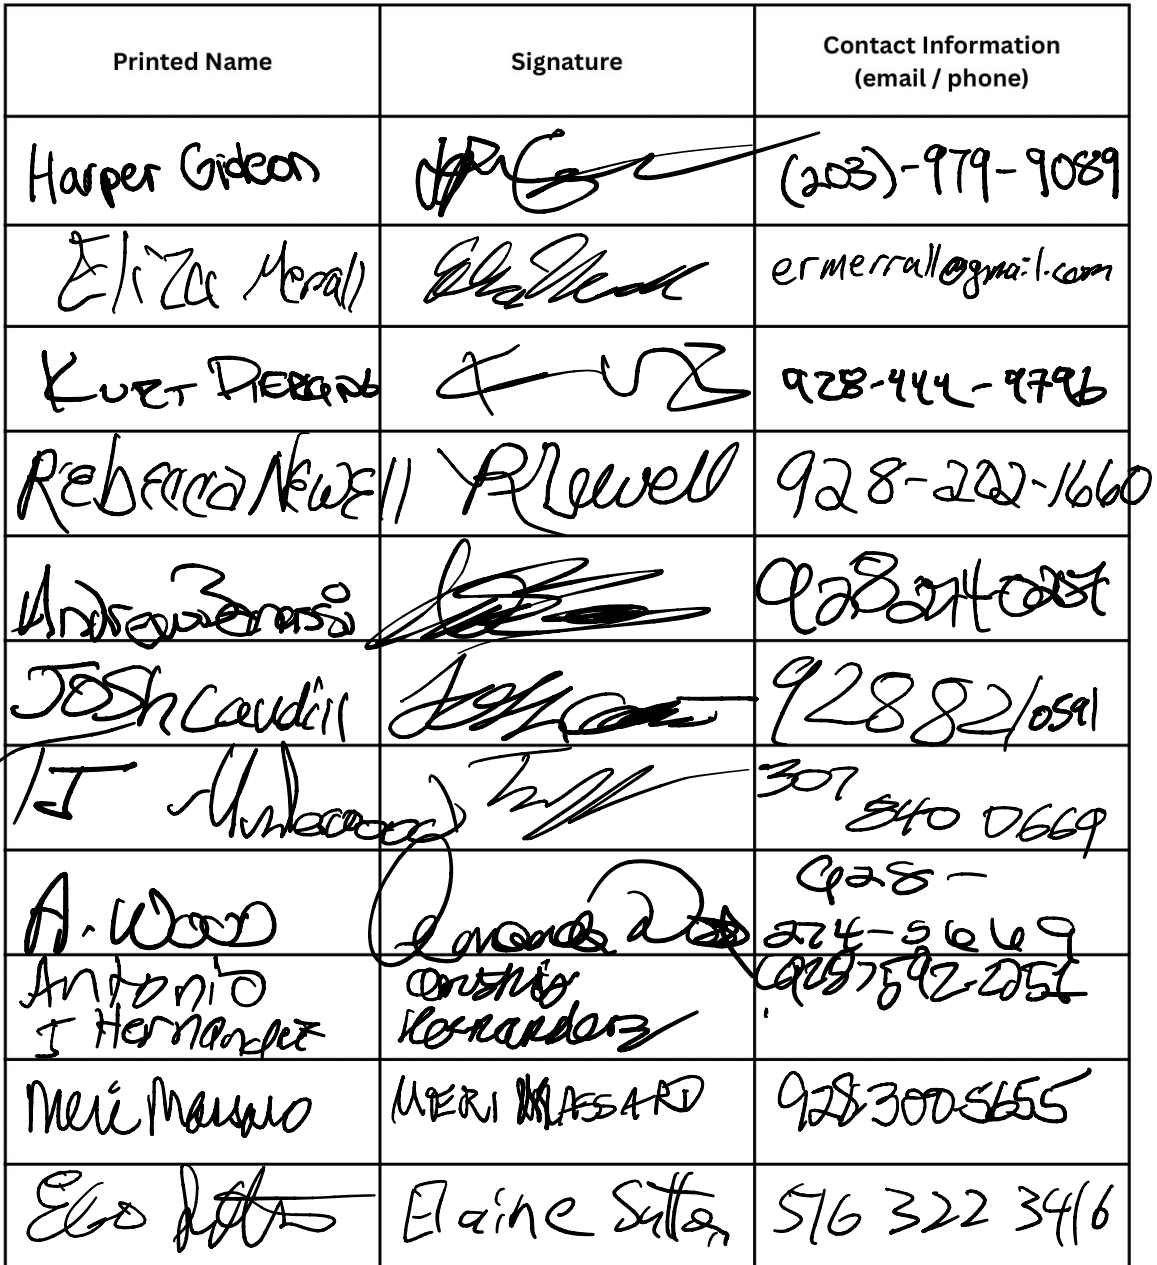 Printed Name
Signature
Contact Information
(email / phone)
Harper Gideon
(203)-979-9089
Eliza Merrall
ermerrall@gmail.com
Kurt
928-444-9796
Rebecca Newell
RNewell
928-202-1660
928 274 0237
Josh Caudill
928 821 0591
TJ
307
840 0669
A. Wood
928-
274-5669
Antonio
J Hernandez
Hernandez
(928) 592-2251
Meri Massard
MERI MASSARD
928 300 5655
Elaine Sutton
516 322 3416